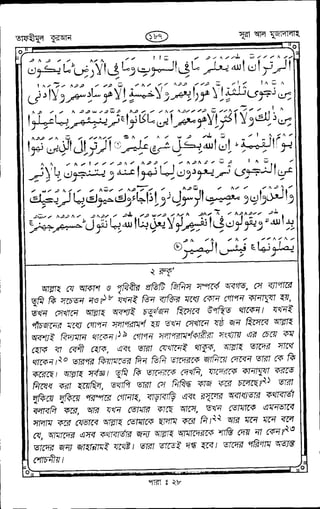 তাফহীমুল কুরআন
১৮৭
সূরা আল মুজাদালাহ
اَلَمْ تَرَ اَنَّ اللّٰهَ يَعْلَمُ مَا فِى السَّمٰوٰتِ وَمَا فِى الْاَرْضِ مَا يَكُوْنُ
مِنْ نَّجْوٰى ثَلٰثَةٍ اِلَّا هُوَ رَابِعُهُمْ وَلَا خَمْسَةٍ اِلَّا هُوَ سَادِسُهُمْ وَلَا اَدْنٰى
مِنْ ذٰلِكَ وَلَا اَكْثَرَ اِلَّا هُوَ مَعَهُمْ اَيْنَ مَا كَانُوْا ثُمَّ يُنَبِّئُهُمْ بِمَا عَمِلُوْا
يَوْمَ الْقِيٰمَةِ اِنَّ اللّٰهَ بِكُلِّ شَىْءٍ عَلِيْمٌ ۝ اَلَمْ تَرَ اِلَى الَّذِيْنَ نُهُوْا
عَنِ النَّجْوٰى ثُمَّ يَعُوْدُوْنَ لِمَا نُهُوْا عَنْهُ وَيَتَنٰجَوْنَ بِالْاِثْمِ
وَالْعُدْوَانِ وَمَعْصِيَتِ الرَّسُوْلِ وَاِذَا جَآءُوْكَ حَيَّوْكَ بِمَا لَمْ يُحَيِّكَ
بِهِ اللّٰهُ وَيَقُوْلُوْنَ فِىْ اَنْفُسِهِمْ لَوْلَا يُعَذِّبُنَا اللّٰهُ بِمَا نَقُوْلُ حَسْبُهُمْ جَهَنَّمُ
يَصْلَوْنَهَا فَبِئْسَ الْمَصِيْرُ ۝
২ রুকূ'
আল্লাহ যে আকাশ ও পৃথিবীর প্রতিটি জিনিস সম্পর্কে অবগত, সে ব্যাপারে
তুমি কি সচেতন নও? যখনই তিন ব্যক্তির মধ্যে কোন গোপন কানাঘুষা হয়,
তখন সেখানে আল্লাহ অবশ্যই চতুর্থজন হিসেবে উপস্থিত থাকেন। যখনই
পাঁচজনের মধ্যে গোপন সলাপরামর্শ হয় তখন সেখানে ষষ্ঠ জন হিসেবে আল্লাহ
অবশ্যই বিদ্যমান থাকেন।১৯ গোপন সলাপরামর্শকারীরা সংখ্যায় এর চেয়ে কম
হোক বা বেশী হোক, এবং তারা যেখানেই থাকুক, আল্লাহ তাদের সাথে
থাকেন।২০ তারপর কিয়ামতের দিন তিনি তাদেরকে জানিয়ে দেবেন তারা কে কি
করেছে। আল্লাহ সর্বজ্ঞ। তুমি কি তাদেরকে দেখনি, যাদেরকে কানাঘুষা করতে
নিষেধ করা হয়েছিল, তথাপি তারা সে নিষিদ্ধ কাজ করে চলেছে।২১ তারা
লুকিয়ে লুকিয়ে পরস্পরে গোনাহ, বাড়াবাড়ি এবং রসূলের অবাধ্যতার কথাবার্তা
বলাবলি করে, আর যখন তোমার কাছে আসে, তখন তোমাকে এমনভাবে
সালাম করে যেভাবে আল্লাহ তোমাকে ছালাম করে নি।২২ আর মনে মনে বলে
যে, আমাদের এসব কথাবার্তার জন্য আল্লাহ আমাদেরকে শাস্তি দেয় না কেন?২৩
তাদের জন্য জাহান্নামই যথেষ্ট। তারা তাতেই দগ্ধ হবে। তাদের পরিণাম অত্যন্ত
শোচনীয়।
পারা : ২৮